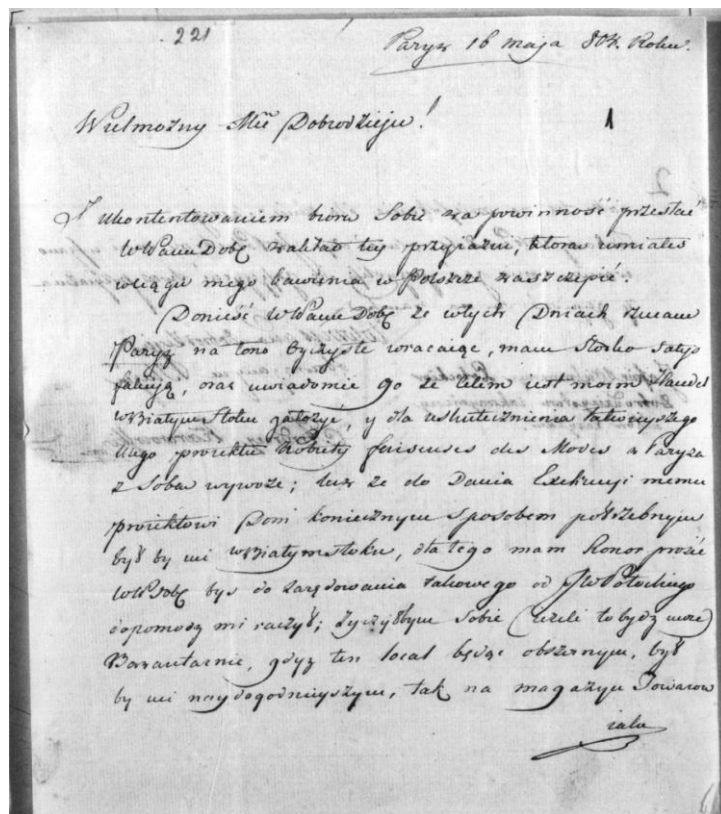 221
Paryż 16 maja 804. Roku.
Wielmożny Mci Dobrodzieju!
1
Z ukontentowaniem biorę Sobie za powinność przesłać
WWPanu Dobę zakład tey przyiazni, ktorąs umiałes
wciągu mego bawienia w Polszcze zaszczepić.
Donieść WWPanu Dobę że wtych Dniach rzucam
Paryż na łono Oyczyste wracaiąc, mam słodko satys
fakcyją, oraz uwiadomie go że celem iest moim Handel
w Białym Stoku załozyć, y dla uskutecznienia łatwieyszego
tego proiektu Kobiety faiseuses des Modes z Paryża
z sobą wywożę; lecz że do Dania Exekucyi memu
proiektowi Dom koniecznym sposobem potrzebnym
był by mi w Białymstoku, dla tego mam honor prosić
WWPDobę bys do zarędowania takowego od JWPotockiego
dopomodz mi raczył; życzył bym sobie (ieżeli to bydz może)
Bazantarnie, gdyż ten local będąc obszernym, był
by mi naydogodnieyszym, tak na magazyn Towarow
iako